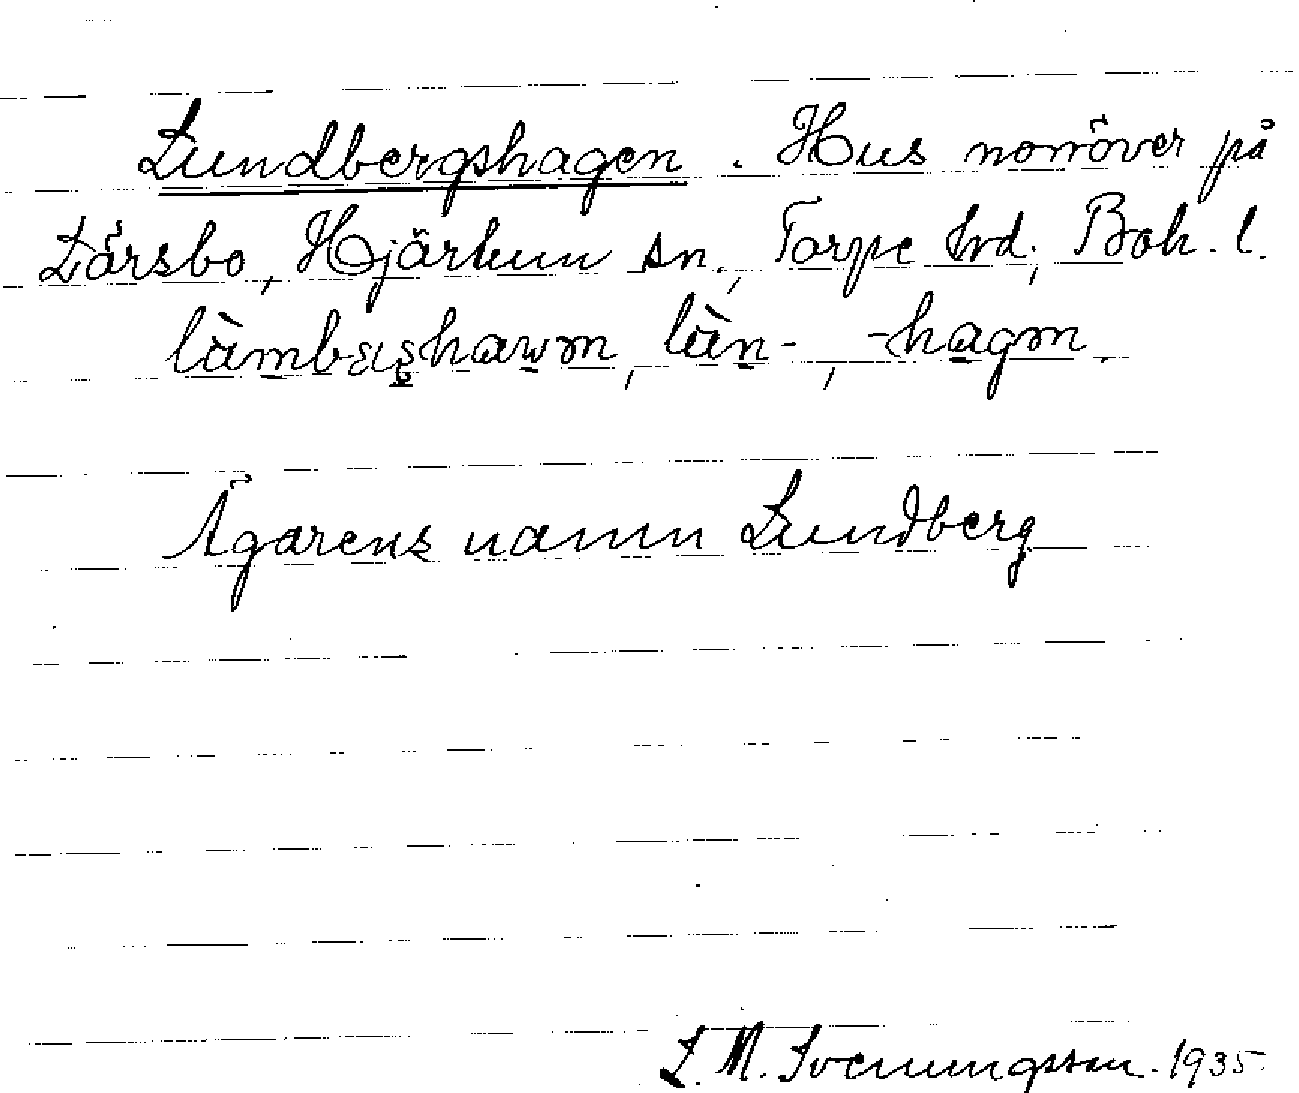 Lundbergshagen. Hus norröver på
Lårsbo, Hjärtum sn., Torpe hrd., Boh. l.
làmbæʂhawm, làn-, -hagm.
Ägarens namn Lundberg
L. M. Svenungsson. 1935